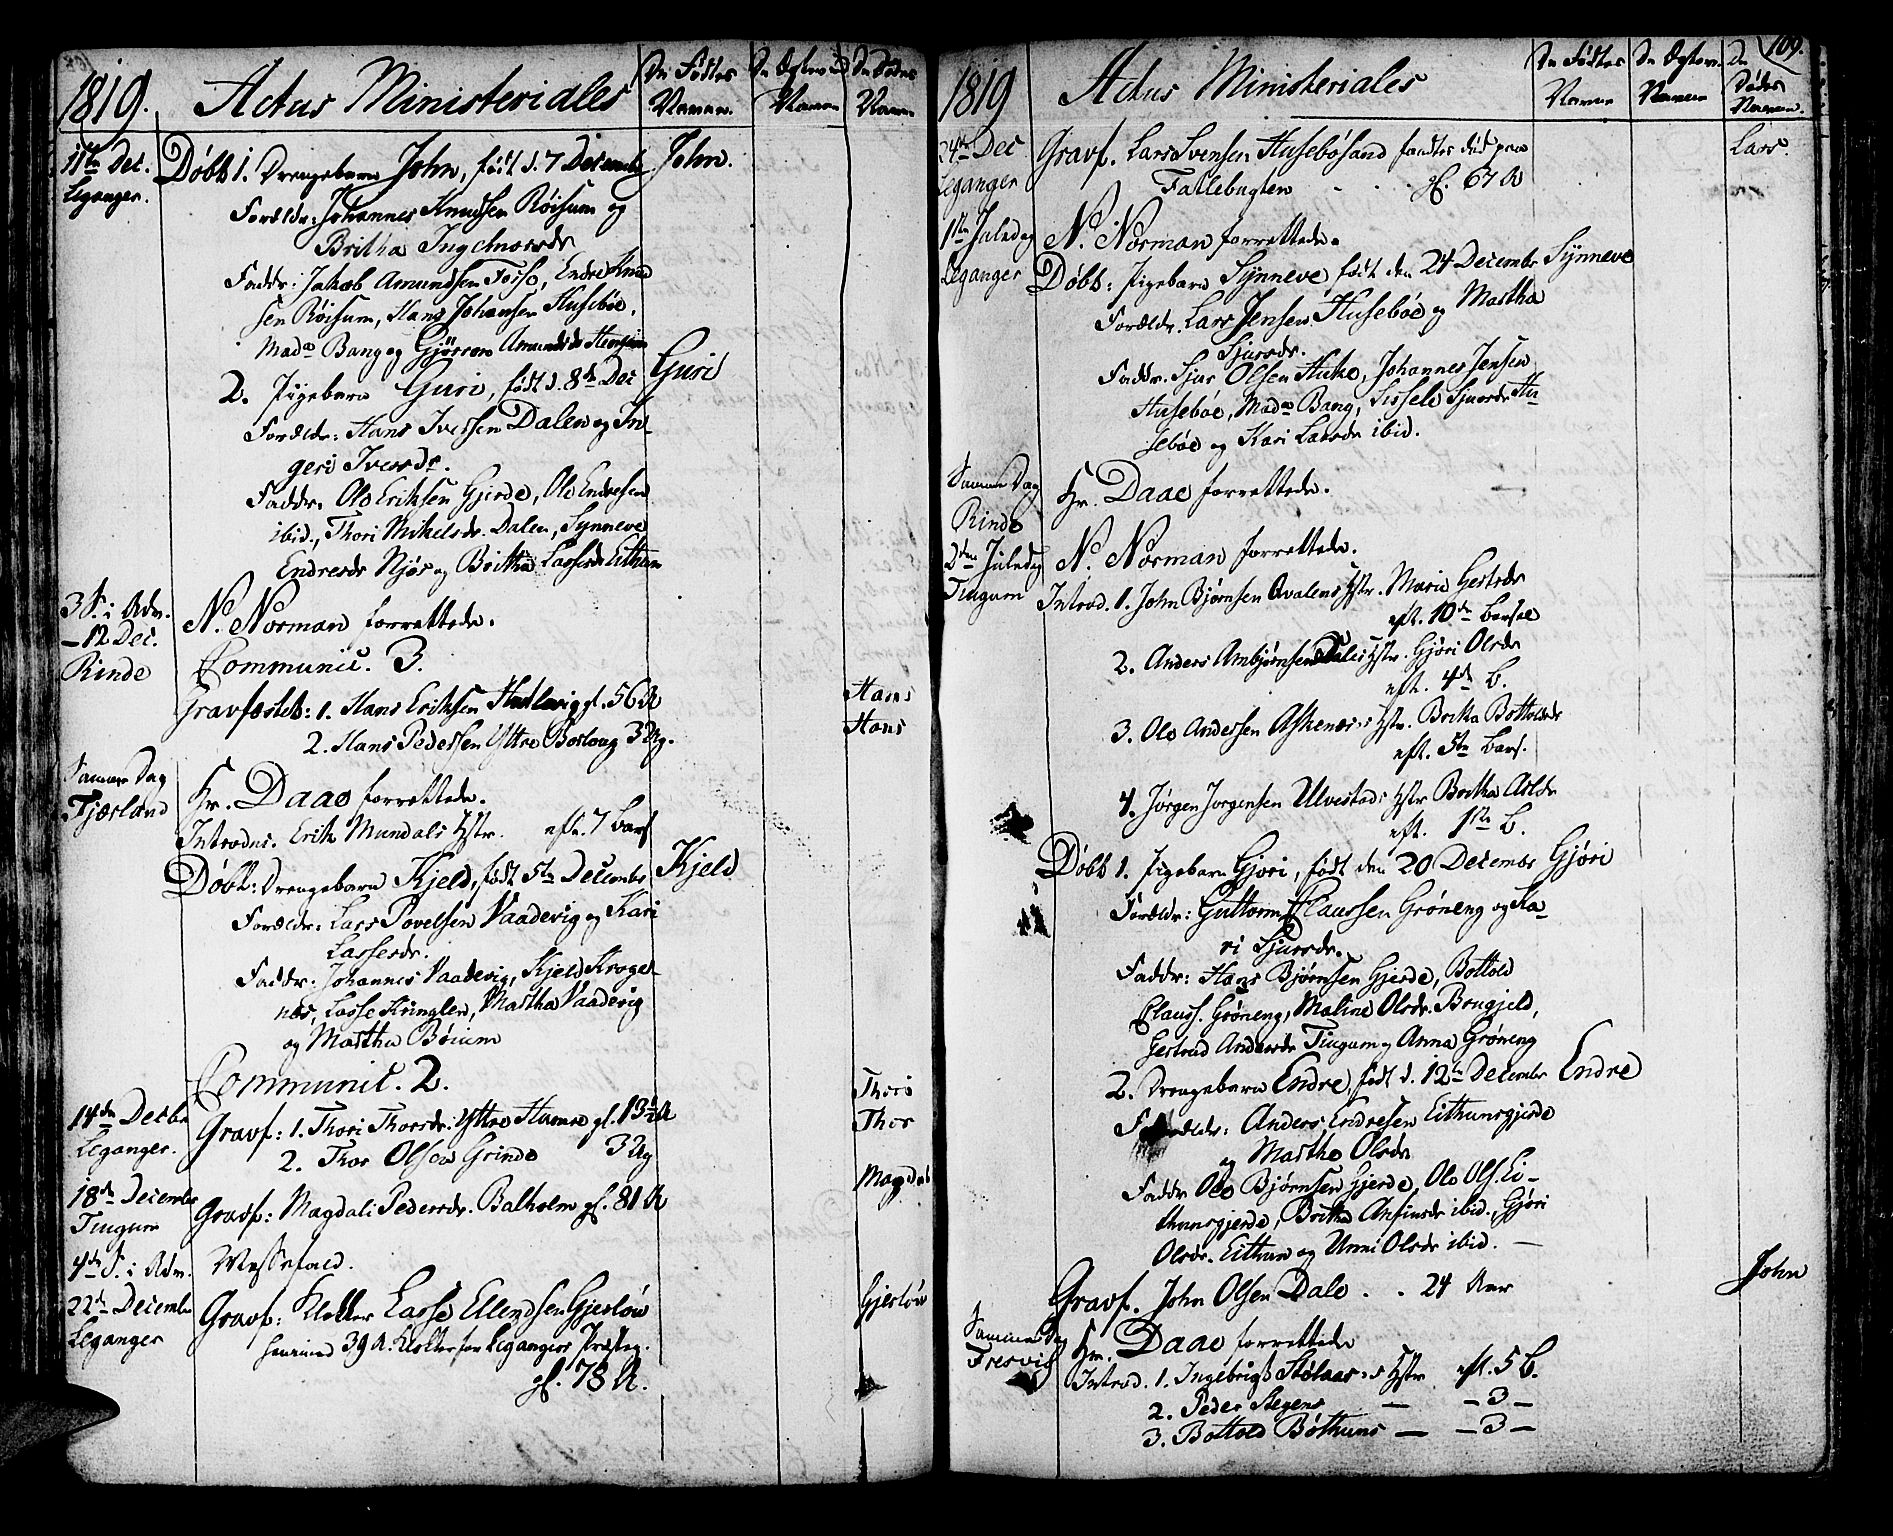 1819. Actus Ministeriales De Fødtes Navne. De Ægtev. Navne De Dødes Navne
11te Dec. Leganger.
Døbt 1. Drengebarn John, født d. 7 Decemb. John.
Forældr: Johannes Knudsen Røisum og
Britha Ingelmorsdr
Faddr: Jakob Amundsen Fosse, Endre Knud
sen Røisum, Hans Johansen Husebøe,
Mad. Bang og Gjørren Amundsdr
2. Pigebarn Guri, født d. 8de Dec Guri
Forældr: Hans Iversen Dalen og In-
geri Iversdr.
Faddr. Ole Eriksen Gjerde, Ole Endresen
ibid., Thori Mikelsdr. Dalen, Synneve
Endresdr Njøs og Britha Lassesdr Eithun
3 S. i Adv. - 12 Dec. Rinde
N. Norman forrettede.
Communic. 3.
Gravfæstet: 1. Hans Eriksen gl. 56 A Hans
2. Hans Pedersen Yttre 3 Ug. Hans
Samme Dag Fjærland
Hr. Daae forrettede.
Introdus. Erik Mundals Hstr. eft. 7 Bars
Døbt: Drengebarn Kjeld, født 5te Decembr Kjeld
Forældr: Lars Povelsen Vaadevig og Kari
Lassesdr.
Faddr: Johannes Vaadevig, Kjeld Kroge-
næs, Lasse Kringlen, Martha Vaadevig
og Martha Bøium
Communic. 2.
14de Decbr Leganger.
Gravf: 1. Thori Thorsdr. Yttre Hamre gl. 13½ A Thori
2. Thor Olsen Grinde 3 Ug Thor
18de Decembr Tiugum
Gravf: Magdali Pedersdr. Balholm gl. 81 A Magdali
4de S. i Adv. Messefald.
22de Decembr Leganger
Gravf: Klokker Lasse Ellendsen Gjesløw Gjesløw
39 A. Klokker for Legangers Præsteg.
gl. 73 A.
109.
1819 Actus Ministeriales De Fødtes Navne De Ægtev. Navne De Dødes Navne.
24de Dec Leganger
Gravf. Lars Svensen Husebøsand fandtes død paa Lars.
Fatlebugten - . . gl. 67 A
1ste Juledag Leganger
N. Norman forrettede.
Døbt: Pigebarn Synneve født den 24 Decembr Synneve
Forældr. Lars Jensen Husebøe og Martha
Sjursdr.
Faddr. Sjur Olsen Huke, Johannes Jensen
Husebøe, Mad. Bang, Sissele Sjursdr Hu-
sebøe og Kari Larsdr ibid.
Samme Dag Rinde
Hr. Daae forrettede.
2den Juledag Tiugum
N. Norman forrettede.
Introd. 1. John Bjørnsen Qvalens Hstr. Marie Gertsdr
eft. 10de Barsel
2. Anders Ambjørnsen Dales Hstr. Gjøri Olsdr
eft. 4de B.
3. Ole Andersen Askenæs's Hstr. Brita Bottolvsdr
eft. 5te Bars.
4. Jørgen Jørgensen Ulvestads Hstr Britha Asledr
eft. 1ste B.
Døbt 1. Pigebarn Gjøri, født den 20 Decembr Gjøri
Forældr: Guttorm Claussen Grøneng og Ka-
ri Sjursdr.
Faddr: Hans Bjørnsen Gjerde, Bottold
Clauss. Grøneng, Maline Olsdr. Brugjeld,
Gertrud Andersdr Tiugum og Anna Grøneng
2. Drengebarn Endre, født d. 12te Decembr Endre
Forældr: Anders Endresen Eithunsgjerde
og Martha Olsdr
Faddr Ole Bjørnsen Gjerde, Ole Ols. Ei-
thunsgjerde, Britha Anfinsdr ibid., Gjøri
Olsdr. Eithun og Unni Olsdr ibid. -
Gravf. John Olsen Dale . . 24 Aar John
Samme Dag Fresvig
Hr. Daae forrettede
Introd. 1. Ingebrigt Stølaas's Hstr eft. 5 B.
2. Peder Stegens — - 3 -
3. Bottold Bøthuns — - 3 -